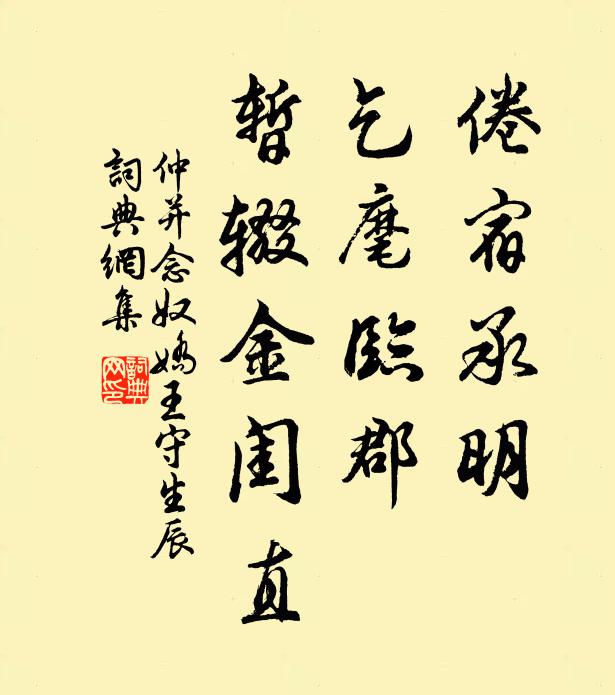 倦宿承明
乞麾臨郡
暫辍金閨直
仲并念奴嬌王守生辰
詞典網集
詞典网印